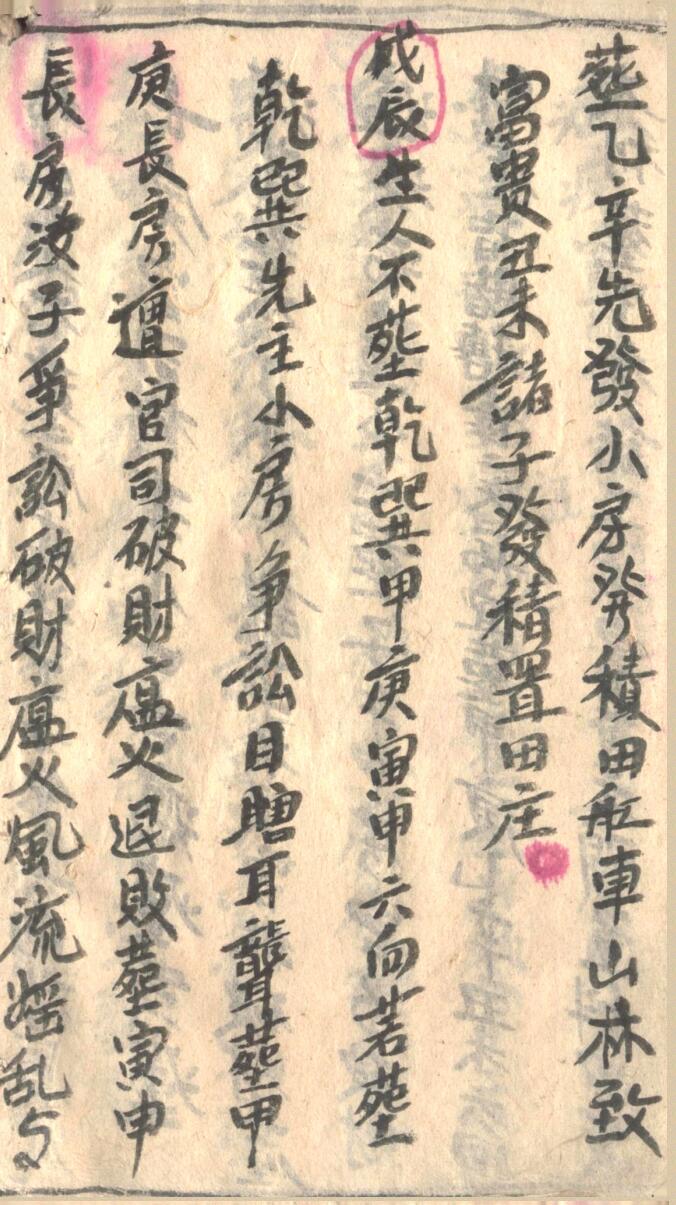 塟乙辛先發小房發積田舡車山林致
富貴丑未諸子發積置田庄
戊辰生人不塟乾巽甲庚寅申六向若塟
乾巽先主小房争訟目瞎耳聾塟甲
庚長房遭官司破財瘟火退敗塟寅申
長房次子爭訟破財瘟火風流婬乱与